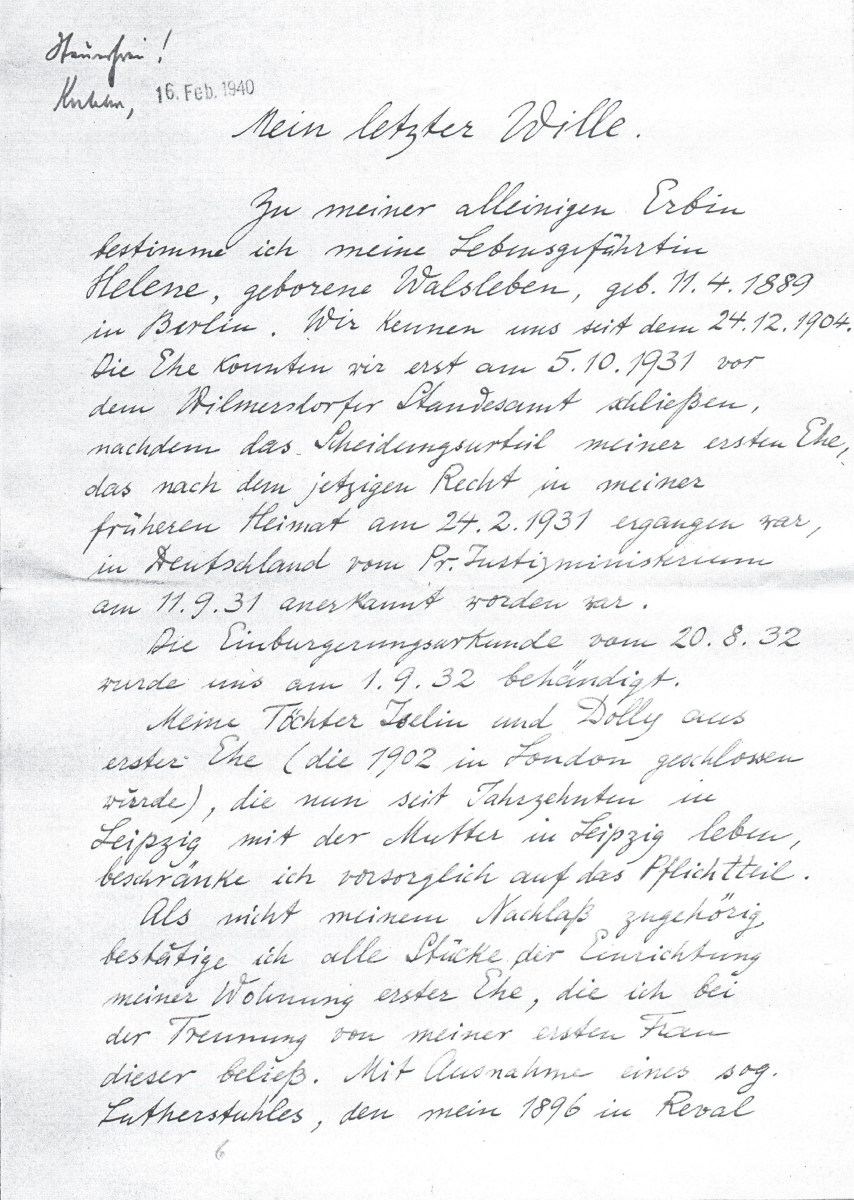 Steuerfrei!
16. Feb. 1940
Mein letzter Wille.
Zu meiner alleinigen Erbin
bestimme ich meine Lebensgefährtin
Helene, geborene Walsleben, geb. 11.4.1889
in Berlin. Wir kennen uns seit dem 24.12.1904.
Die Ehe konnten wir erst am 5.10.1931 vor
dem Wilmersdorfer Standesamt schließen,
nachdem das Scheidungsurteil meiner ersten Ehe,
das nach dem jetzigen Recht in meiner
früheren Heimat am 24.2.1931 ergangen war,
in Deutschland vom Pr. Justizministerium
am 11.9.31 anerkannt worden war.
Die Einbürgerungsurkunde vom 20.8.32
wurde uns am 1.9.32 behändigt.
Meine Töchter Iselin und Dolly aus
erster Ehe (die 1902 in London geschlossen
wurde), die nun seit Jahrzehnten in
Leipzig mit der Mutter in Leipzig leben,
beschränke ich vorsorglich auf das Pflichtteil.
Als nicht meinem Nachlaß zugehörig
bestätige ich alle Stücke der Einrichtung
meiner Wohnung erster Ehe, die ich bei
der Trennung von meiner ersten Frau
dieser beließ. Mit Ausnahme eines sog.
Lutherstuhles, den mein 1896 in Reval
6